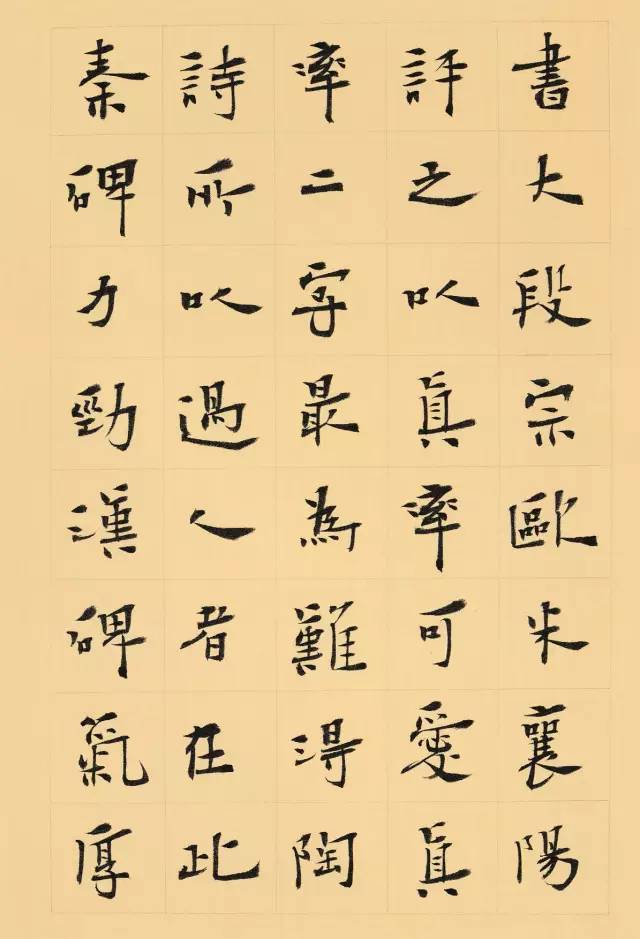 書大段宗歐米襄陽
評之以真率可愛真
率二字最為難得陶
詩所以過人者在此
秦碑力勁漢碑氣厚